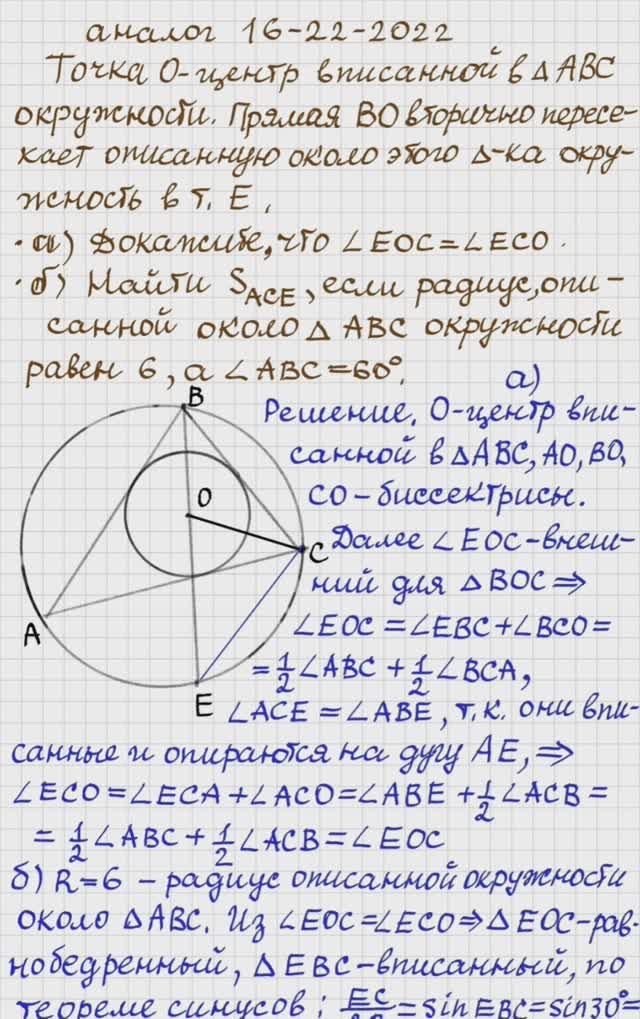 аналог 16-22-2022
Точка О-центр вписанной в ΔABC
окружности. Прямая BO вторично пересе-
кает описанную около этого Δ-ка окру-
жность в т. E.
· а) Докажите, что ∠EOC=∠ECO.
· б) Найти S_ACE, если радиус, опи-
санной около Δ ABC окружности
равен 6, а ∠ABC=60°.
а)
Решение. О-центр впи-
санной в ΔABC, AO, BO,
CO-биссектрисы.
Далее ∠EOC-внеш-
ний для ΔBOC ⇒
∠EOC = ∠EBC+∠BCO =
= 1/2 ∠ABC + 1/2 ∠BCA,
∠ACE = ∠ABE, т.к. они впи-
санные и опираются на дугу AE, ⇒
∠ECO = ∠ECA+∠ACO = ∠ABE + 1/2 ∠ACB =
= 1/2 ∠ABC + 1/2 ∠ACB = ∠EOC
б) R=6 – радиус описанной окружности
около ΔABC. Из ∠EOC=∠ECO ⇒ ΔEOC-рав-
нобедренный, ΔEBC-вписанный, по
теореме синусов: EC = sin EBC = sin 30° =
B
O
C
A
E